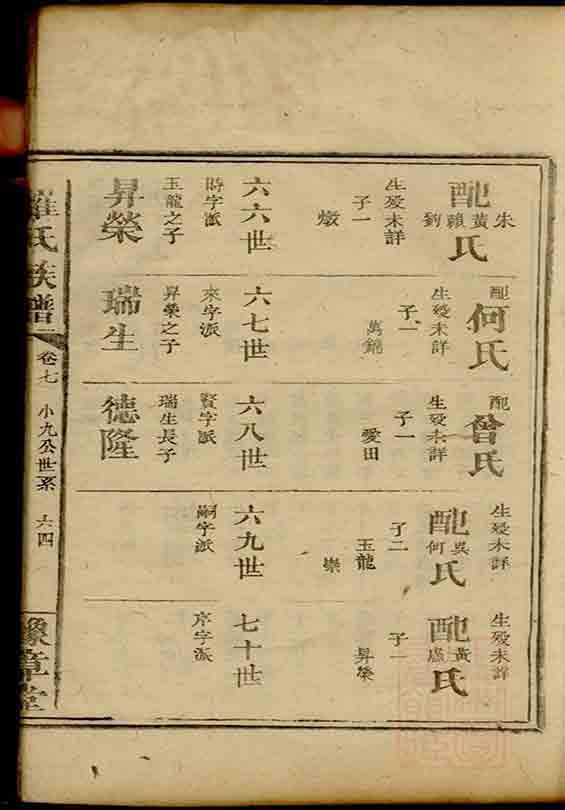 配朱黃賴劉氏
生歿未詳
子一
燉
六六世
時字派
玉龍之子
昇榮
配何氏
生歿未詳
子一
萬錦
六七世
來字派
昇榮之子
瑞生
配曾氏
生歿未詳
子一
愛田
六八世
賢字派
瑞生長子
德隆
生歿未詳
配吳何氏
子二
玉龍
崇
六九世
嗣字派
生歿未詳
配黃盧氏
子一
昇榮
七十世
序字派
羅氏族譜
卷七
小九公世系
六四
豫章堂